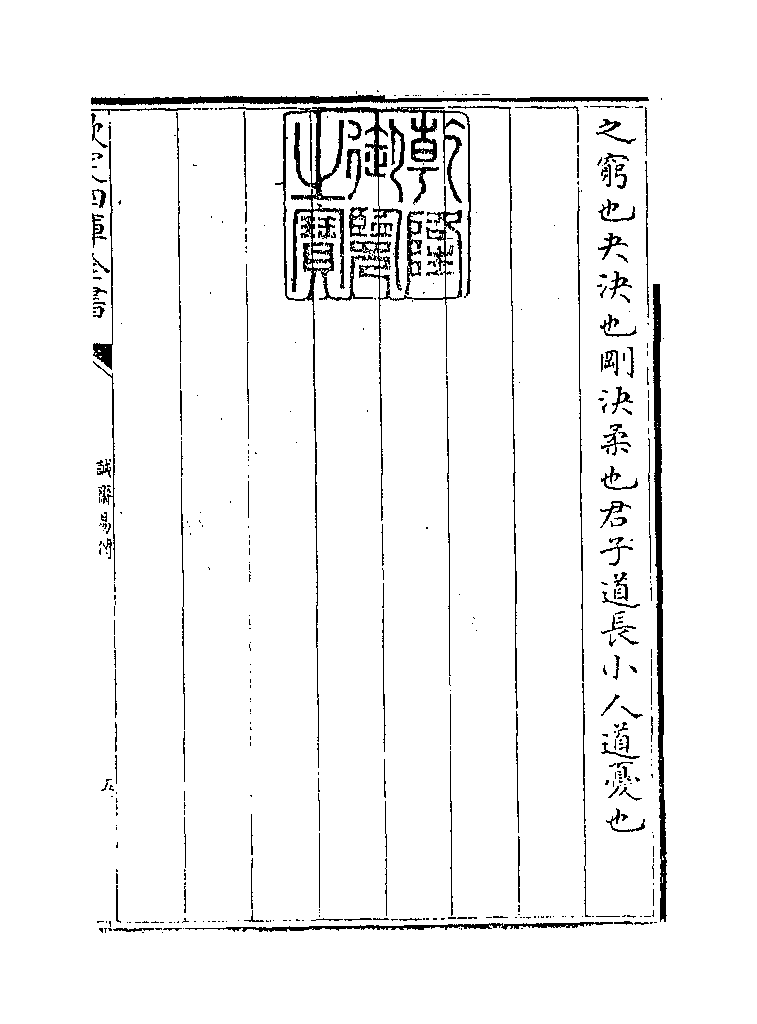 之窮也夬決也剛決柔也君子道長小人道憂也
乾隆御覽之寶
欽定四庫全書
誠齋易傳
五